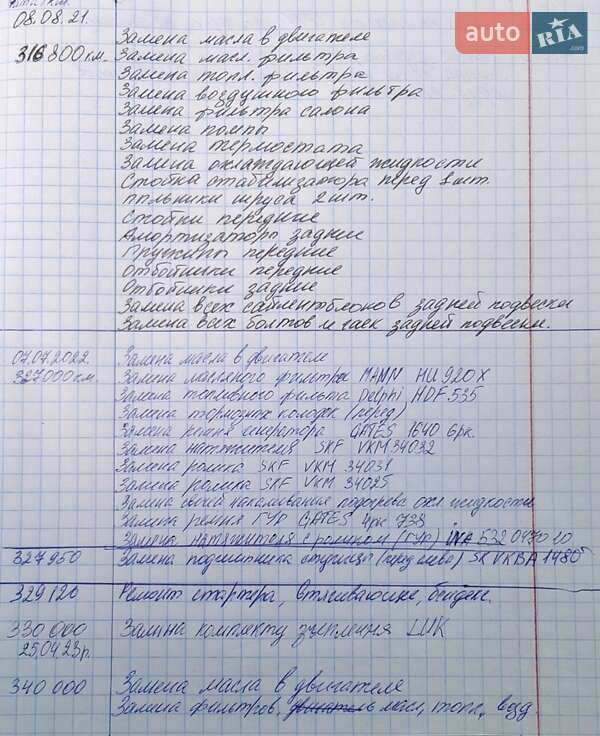 08.08.21.
auto RIA .com
Замена масла в двигателе
316 800 км. Замена масл. фильтра
Замена топл. фильтра
Замена воздушного фильтра
Замена фильтра салона
Замена помпы
Замена термостата
Замена охлаждающей жидкости
Стойка стабилизатора перед 1 шт.
пыльники шруса 2 шт.
Стойки передние
Амортизаторы задние
Пружины передние
Отбойники передние
Отбойники задние
Замена всех сайлентблоков задней подвески
Замена всех болтов и гаек задней подвески.
07.07.2022 Замена масла в двигателе
327000 км. Замена масляного фильтра MANN HU 920X
Замена топливного фильтра Delphi HDF 535
Замена тормозных колодок (перед)
Замена ремня генератора GATES 1640 6pk.
Замена натяжителя SKF VKM 34032
Замена ролика SKF VKM 34031
Замена ролика SKF VKM 34025
Замена свечей накаливания подогрева охл. жидкости
Замена ремня ГУР GATES 4pk 738
Замена натяжителя с роликом (ГУР) INA 532 0470 10
327950 Замена подшипника ступицы (перед лево) SKF VKBA 1480
329120 Ремонт стартера, Втягивающие, бендекс.
330 000 Заміна комплекту зчеплення LUK
25.04.23р.
340 000 Замена масла в двигателе
Замена фильтров, масл, топл, возд.